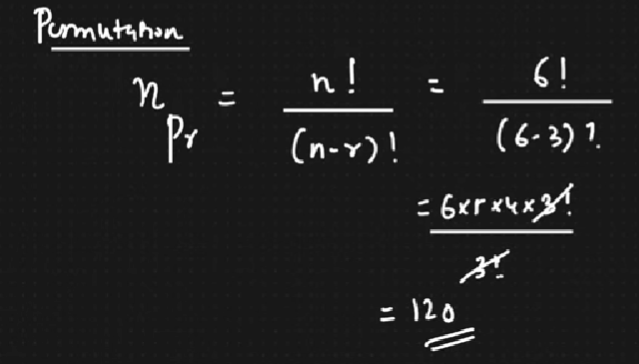 Permutation
nPr = n! / (n-r)! = 6! / (6-3)!
= 6x5x4x3! / 3!
= 120